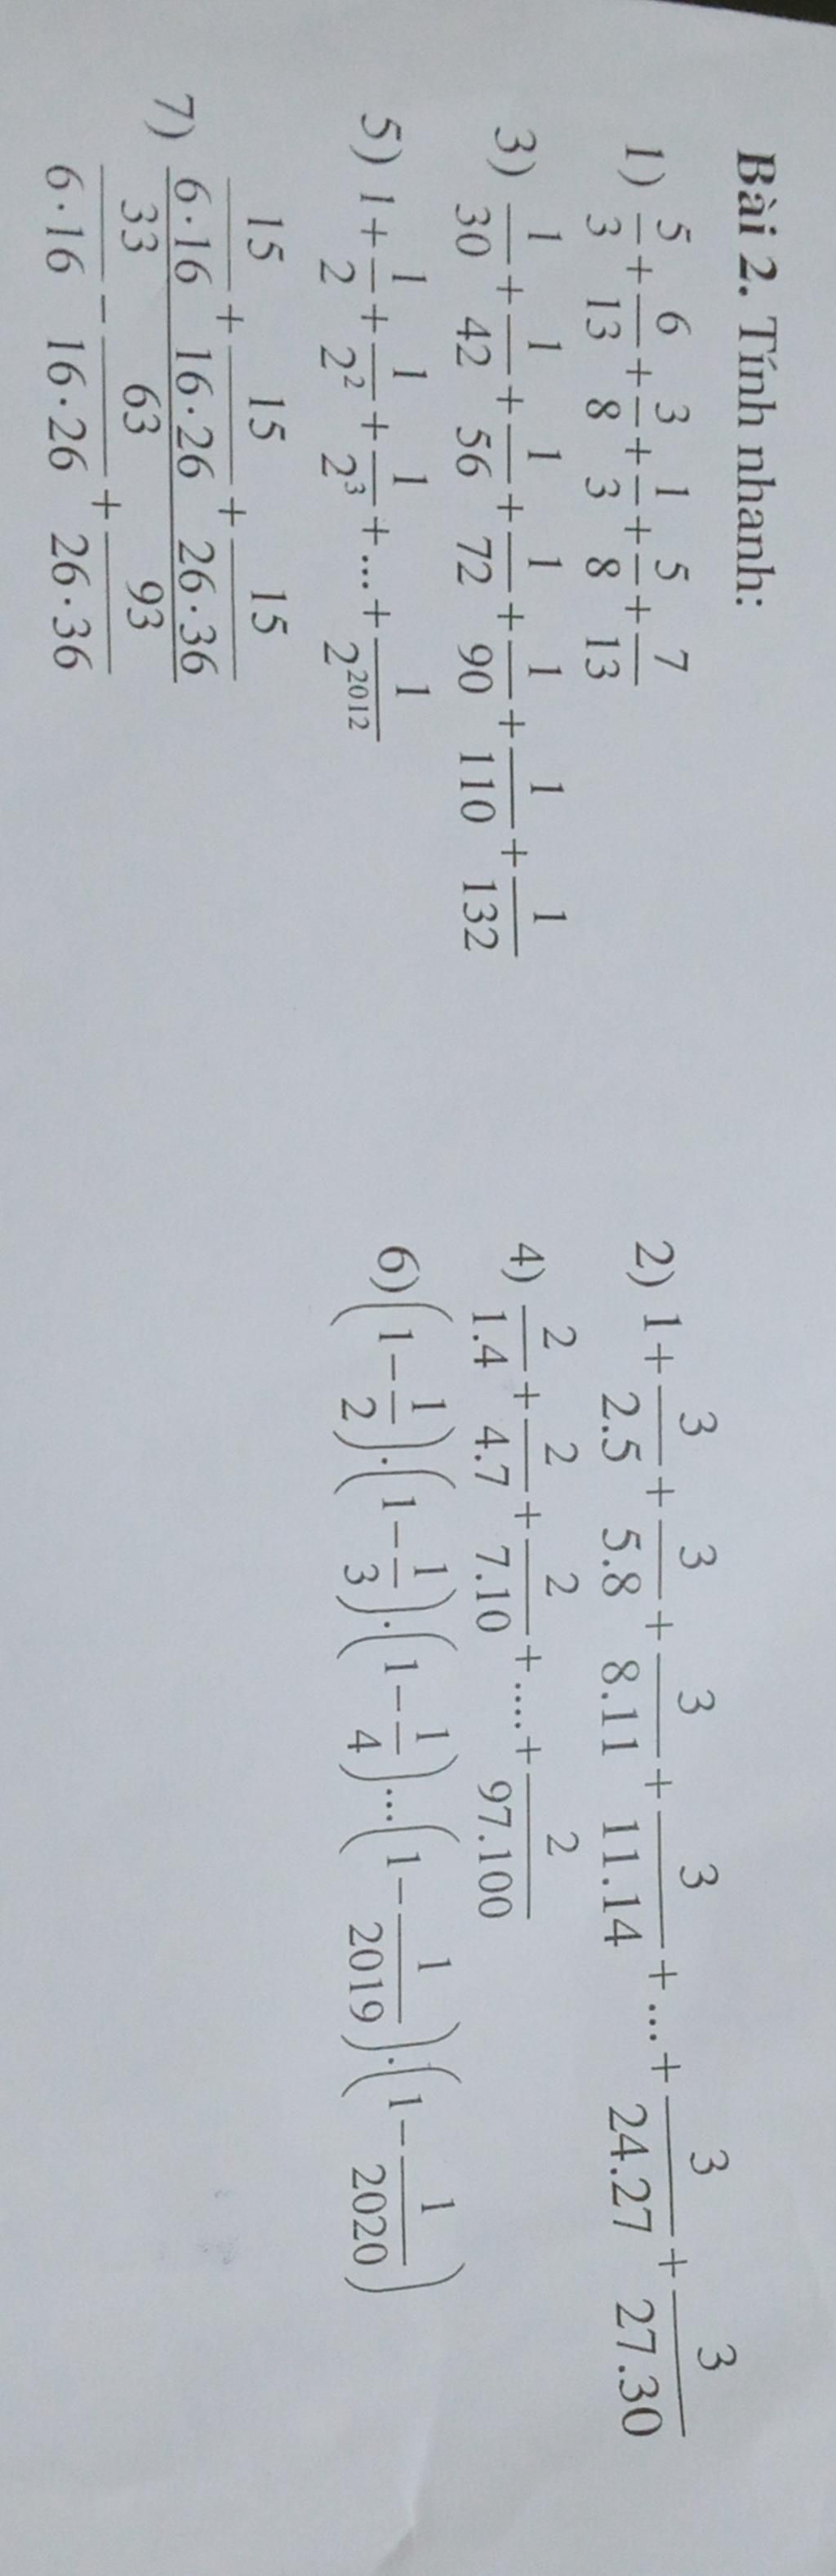 Bài 2. Tính nhanh:
1) 5/3 + 6/13 + 3/8 + 1/3 + 5/8 + 7/13
2) 1 + 3/2.5 + 3/5.8 + 3/8.11 + 3/11.14 + ... + 3/24.27 + 3/27.30
3) 1/30 + 1/42 + 1/56 + 1/72 + 1/90 + 1/110 + 1/132
4) 2/1.4 + 2/4.7 + 2/7.10 + .... + 2/97.100
5) 1 + 1/2 + 1/2² + 1/2³ + ... + 1/2²⁰¹²
6) (1 − 1/2).(1 − 1/3).(1 − 1/4)...(1 − 1/2019).(1 − 1/2020)
7) (15/6·16 + 15/16·26 + 15/26·36) / (33/6·16 − 63/16·26 + 93/26·36)